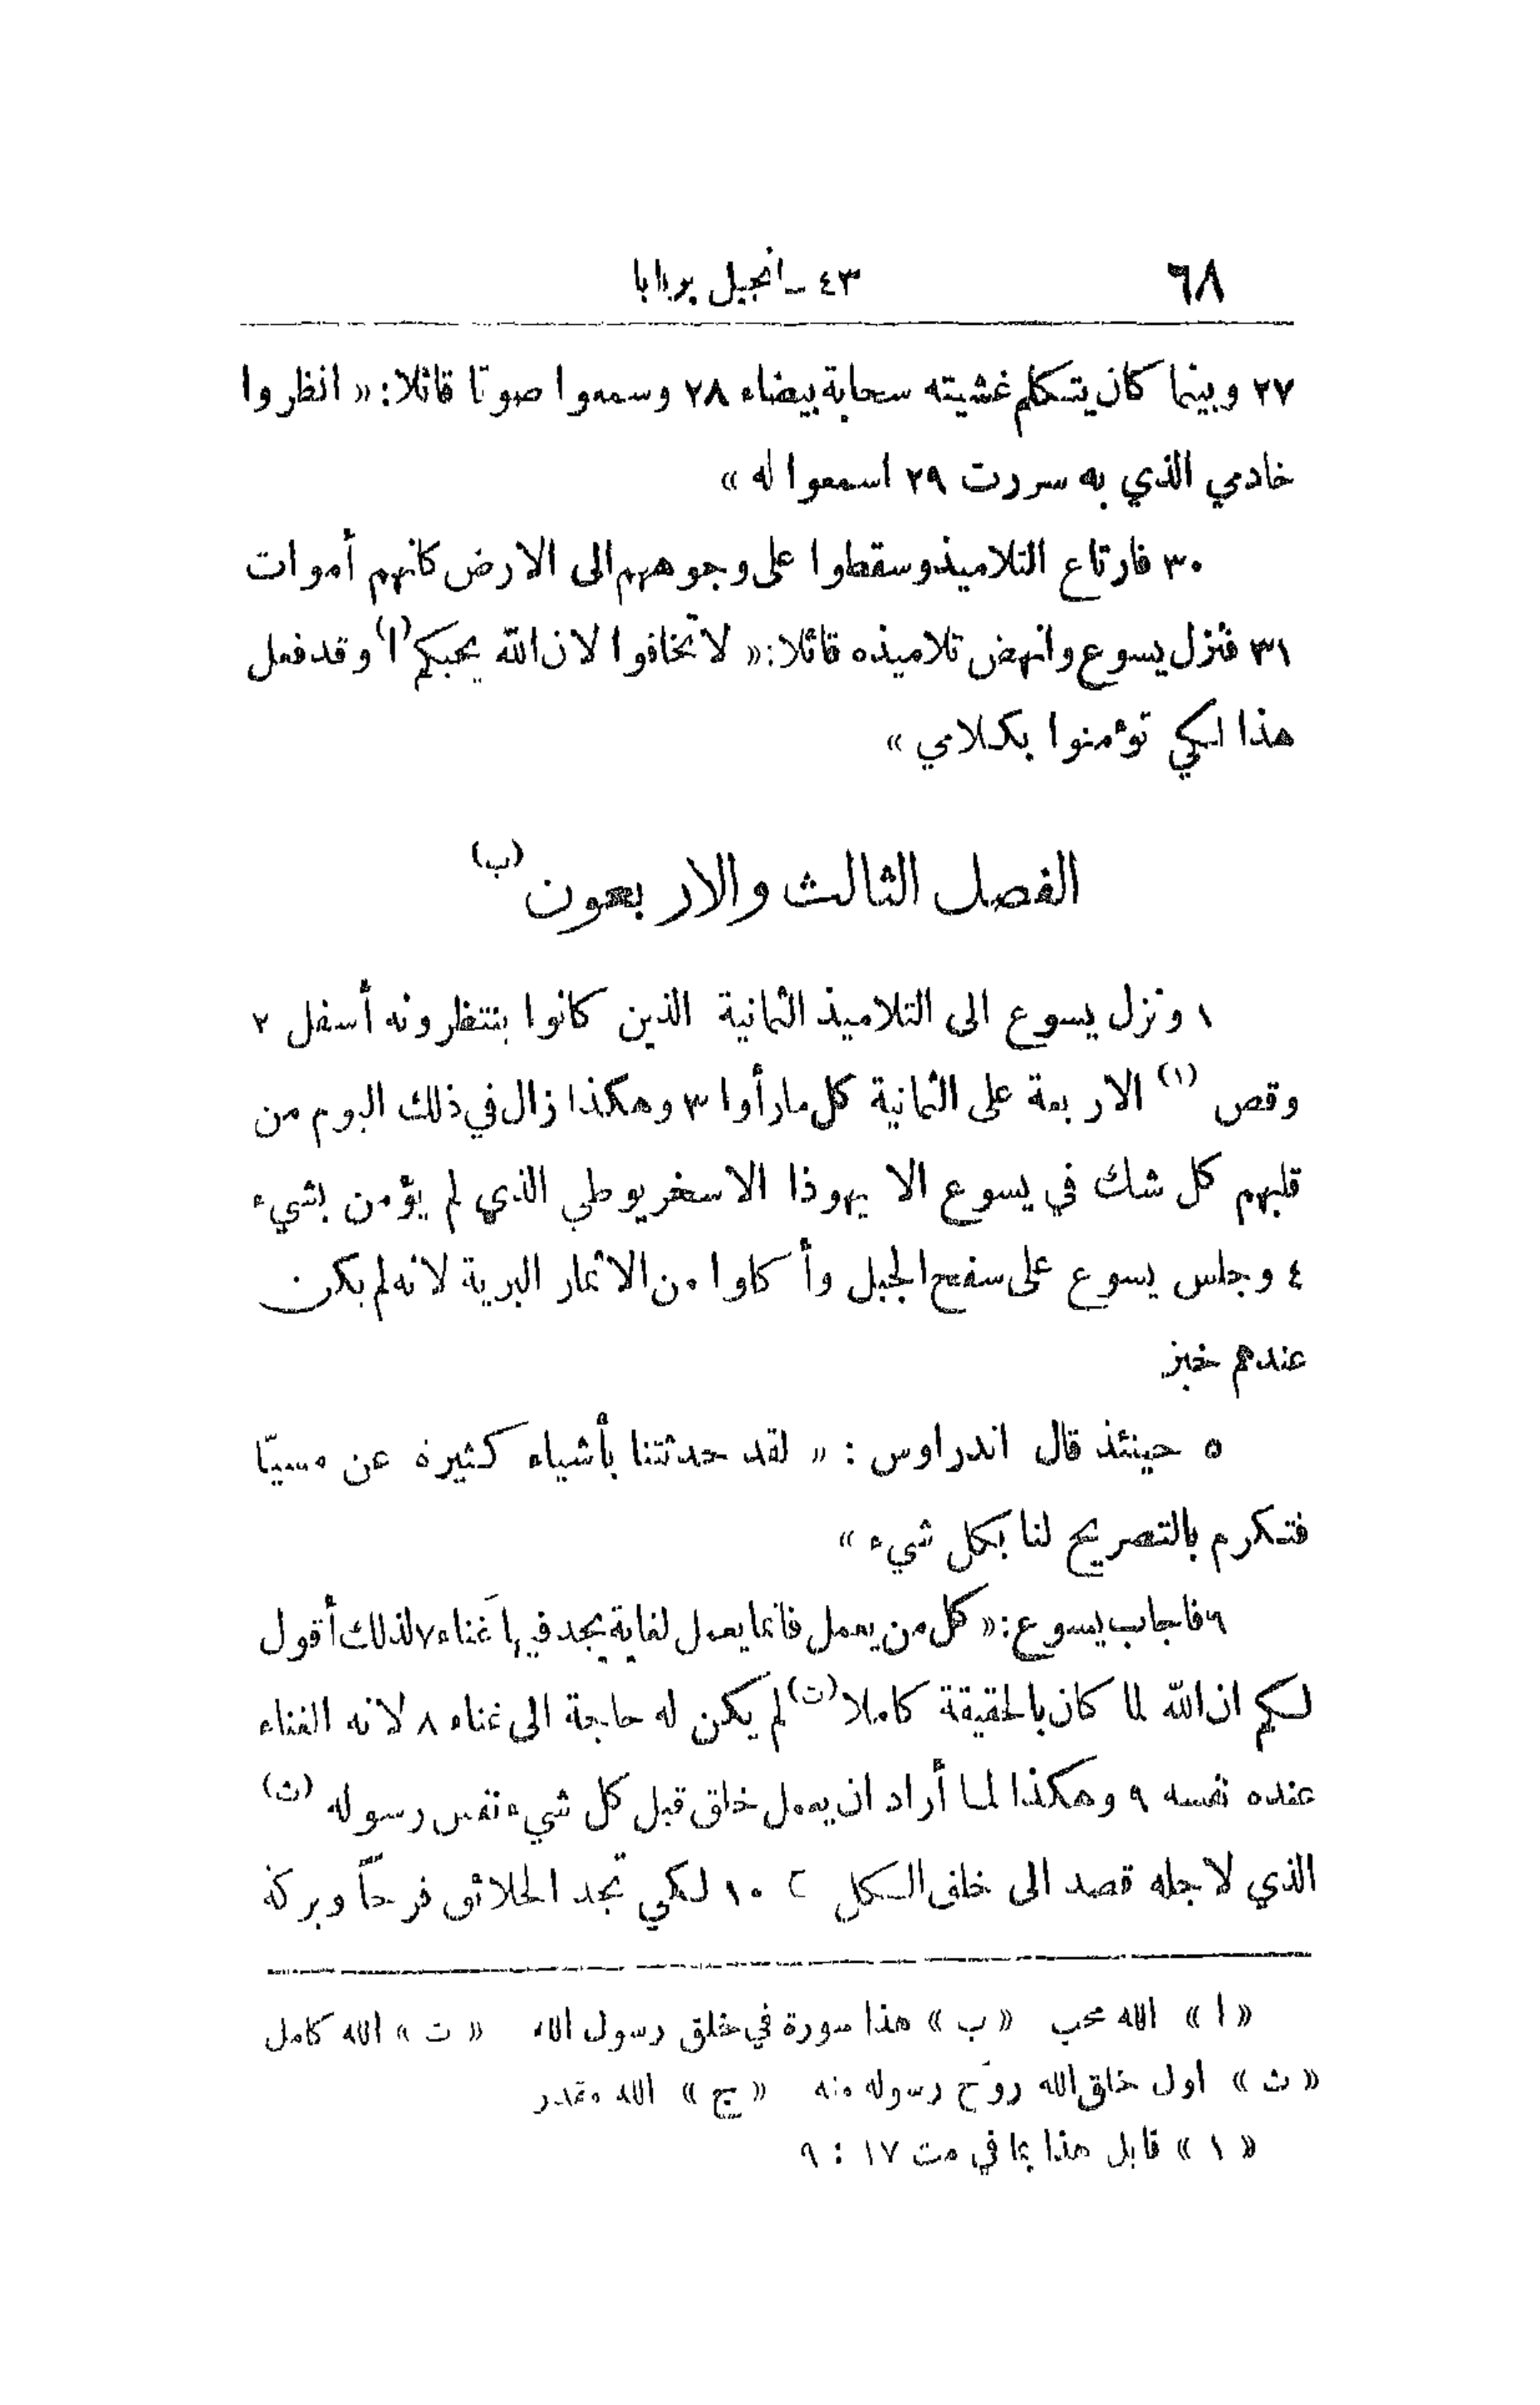 ٦٨ ٤٣ ـ انجيل برنابا
٢٧ وبينما كان يتكلم غشيته سحابة بيضاء ٢٨ وسمعوا صوتا قائلا: « انظروا
خادمي الذي به سررت ٢٩ اسمعوا له »
٣٠ فارتاع التلاميذ وسقطوا على وجوههم الى الارض كانهم أموات
٣١ فنزل يسوع وانهض تلاميذه قائلا: « لا تخافوا لان الله يحبكم (ا) وقد فعل
هذا لكي تؤمنوا بكلامي »
الفصل الثالث والاربعون (ب)
١ ونزل يسوع الى التلاميذ الثمانية الذين كانوا ينتظرونه أسفل ٢
وقص (١) الاربعة على الثمانية كل ما رأوا ٣ وهكذا زال في ذلك اليوم من
قلبهم كل شك في يسوع الا يهوذا الاسخريوطي الذي لم يؤمن بشيء
٤ وجلس يسوع على سفح الجبل وأكلوا من الاثمار البرية لانه لم يكن
عندهم خبز
٥ حينئذ قال اندراوس : « لقد حدثتنا بأشياء كثيرة عن مسيّا
فتكرم بالتصريح لنا بكل شيء »
٦ فاجاب يسوع : « كل من يعمل فانما يعمل لغاية يجد فيها غَناء ٧ لذلك أقول
لكم ان الله لما كان بالحقيقة كاملا (ت) لم يكن له حاجة الى غناء ٨ لانه الغناء
عنده نفسه ٩ وهكذا لما أراد ان يعمل خلق قبل كل شيء نفس رسوله (ث)
الذي لاجله قصد الى خلق الكل ج ١٠ لكي تجد الخلائق فرحاً وبركة
« ا » الله محب « ب » هذا سورة في خلق رسول الله « ت » الله كامل
« ث » اول خلق الله روح رسوله منه « ج » الله مقدر
« ١ » قابل هذا بما في مت ١٧ : ٩